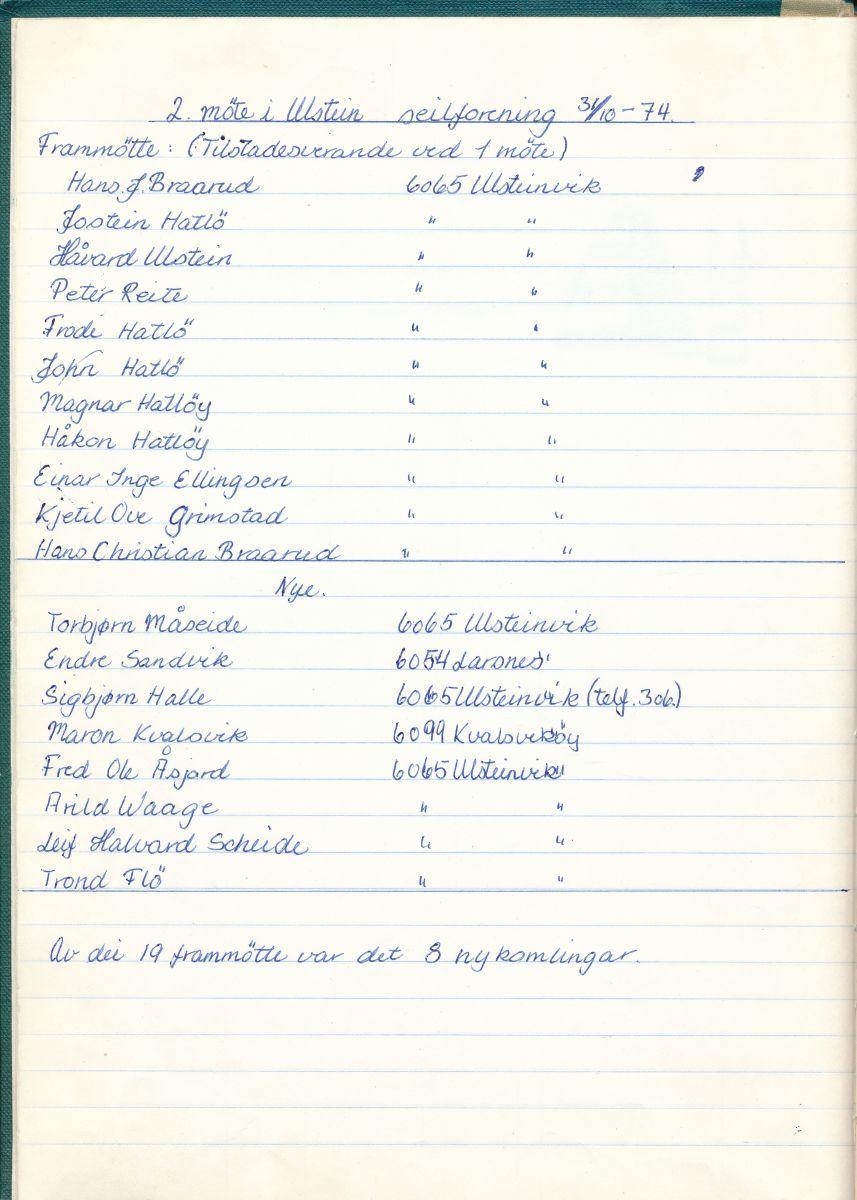 2. möte i Ulstein seilforening 31/10-74.
Frammötte: (Tilstadesverande ved 1 möte)
Hans. J. Braarud 6065 Ulsteinvik
Jostein Hatlö " "
Håvard Ulstein " "
Peter Reite " "
Frode Hatlö " "
John Hatlö " "
Magnar Hatlöy " "
Håkon Hatlöy " "
Einar Inge Ellingsen " "
Kjetil Ove Grimstad " "
Hans Christian Braarud " "
Nye.
Torbjørn Måseide 6065 Ulsteinvik
Endre Sandvik 6054 Larsnes
Sigbjørn Halle 6065 Ulsteinvik (telf. 306.)
Maron Kvalsvik 6099 Kvalsviköy
Fred Ole Åsjord 6065 Ulsteinvik
Arild Waage " "
Leif Halvard Scheide " "
Trond Flö " "
Av dei 19 frammötte var det 8 nykomlingar.